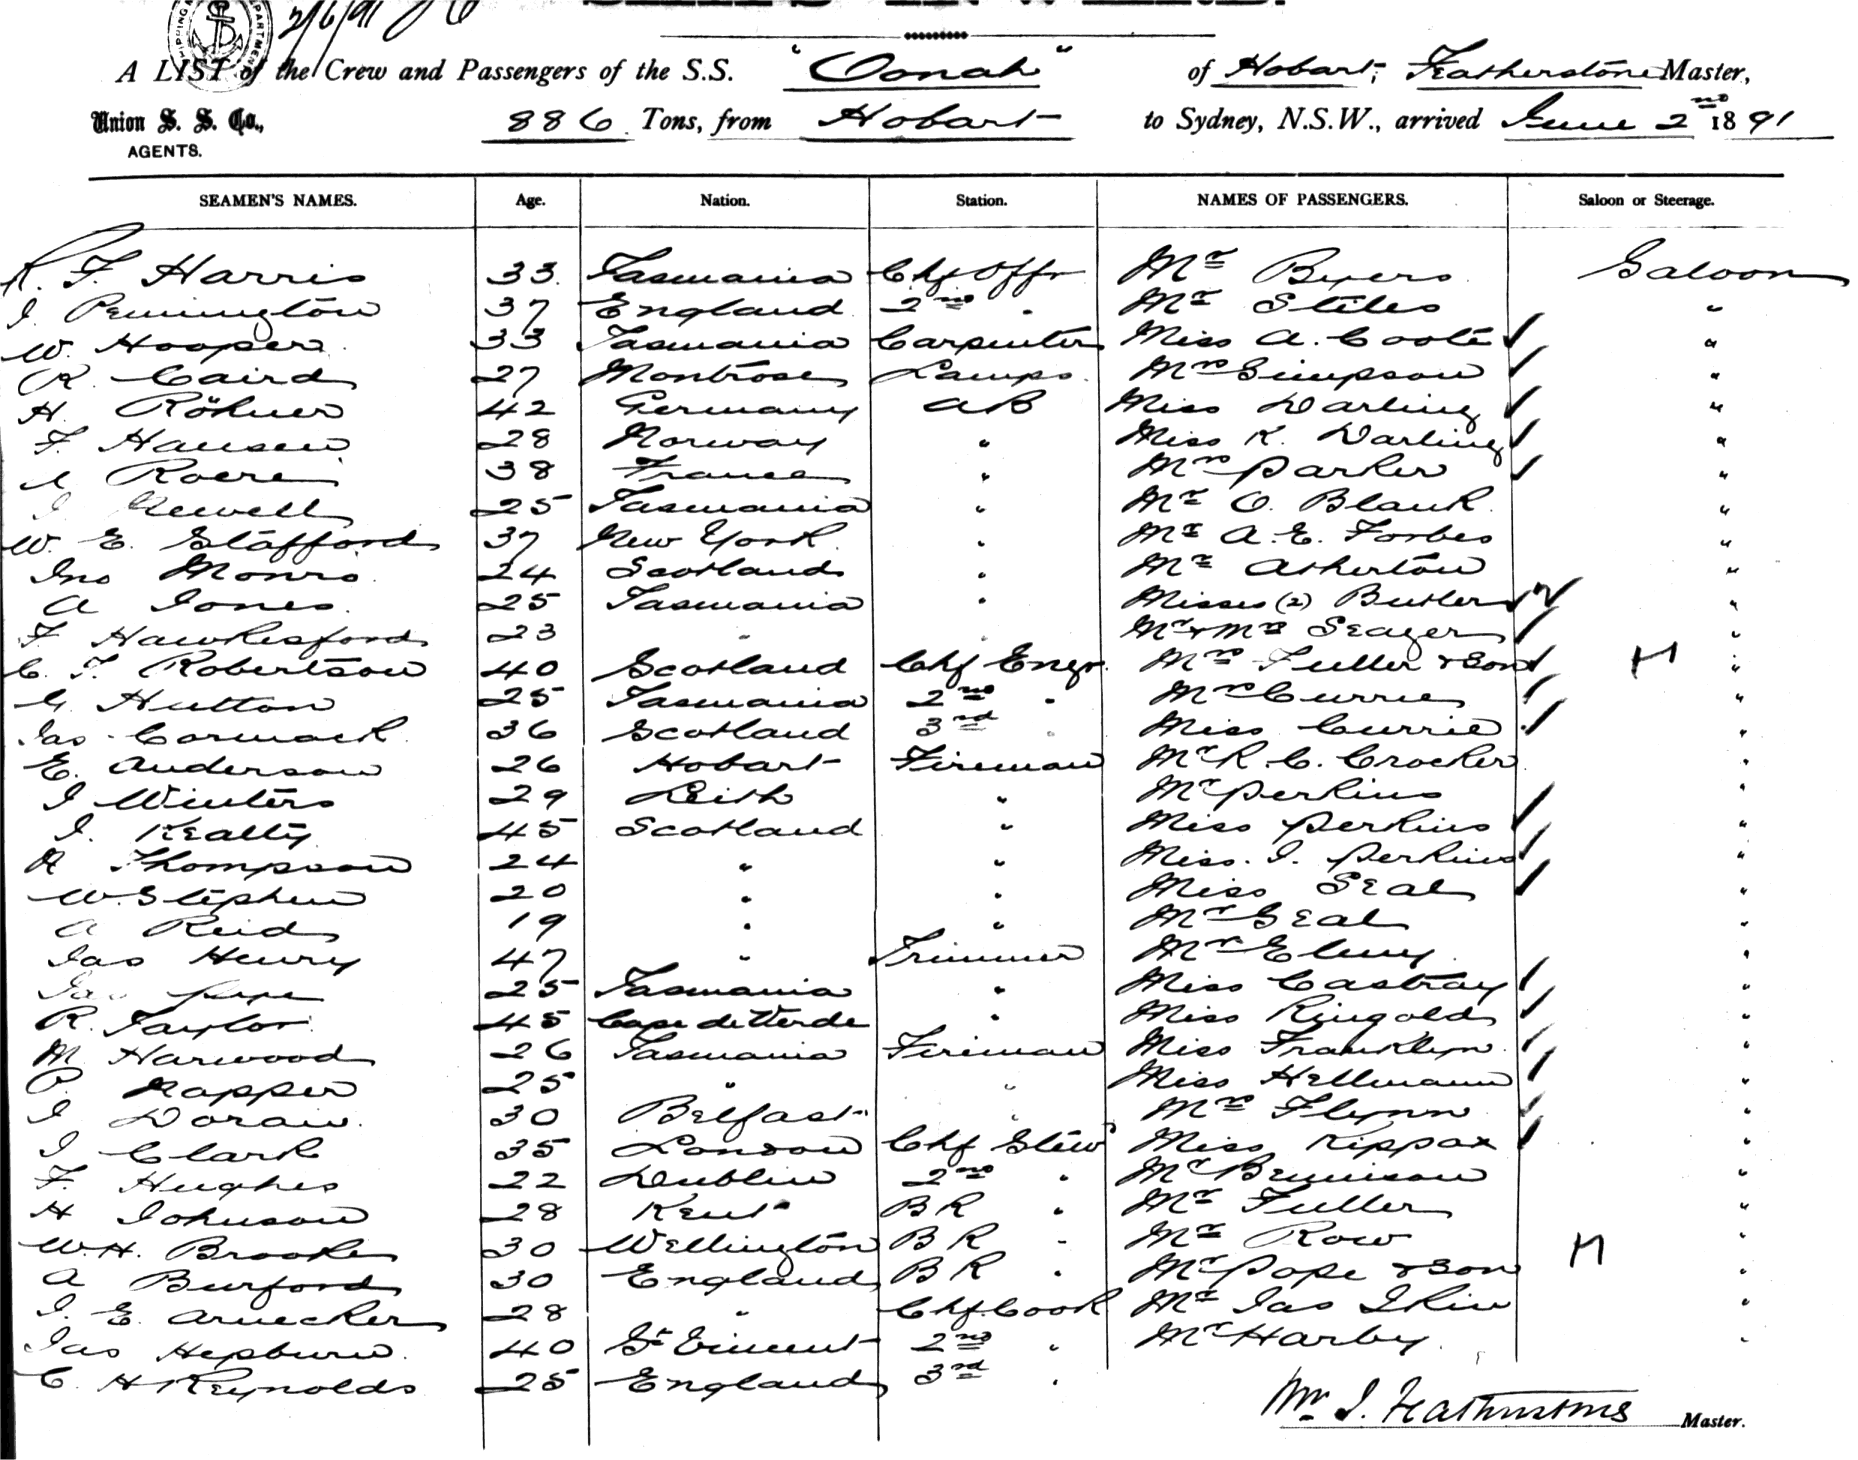 2/6/91
A LIST of the Crew and Passengers of the S.S. "Oonah" of Hobart, Featherstone Master,
Union S. S. Co., 886 Tons, from Hobart to Sydney, N.S.W., arrived June 2nd 1891
AGENTS.
SEAMEN'S NAMES. Age. Nation. Station. NAMES OF PASSENGERS. Saloon or Steerage.
R. F. Harris 33. Tasmania Chf Offr Mr Byers Saloon
J. Pennington 37 England 2nd " Mr Stiles "
W. Hooper 33 Tasmania Carpenter Miss A. Coote "
R. Caird 27 Montrose Lamps Mrs Simpson "
H. Röhner 42 Germany AB Miss Darling "
F. Hansen 28 Norway " Miss K. Darling "
Roere 38 France " Mrs Parker "
J. Newell 25 Tasmania " Mr O. Blank "
W. E. Stafford 37 New York " Mr A. E. Forbes "
Jno Monro 24 Scotland " Mr Atherton "
A Jones 25 Tasmania " Misses (2) Butler "
F. Hawkesford 23 " " Mr & Mrs Seager "
C. T. Robertson 40 Scotland Chf Engr Mrs Fuller & Son H "
G. Hutton 25 Tasmania 2nd " Mrs Currie "
Jas Cormack 36 Scotland 3rd " Miss Currie "
E. Anderson 26 Hobart Fireman Mr R. C. Crocker "
J Winters 29 Leith " Mr Perkins "
J. Kealty 45 Scotland " Miss Perkins "
A Thompson 24 " " Miss. J. Perkins "
W. Stephen 20 " " Miss Seal "
A Reid 19 " " Mr Seal "
Jas Henry 47 " Trimmer Mr Elmy "
Jas Pype 25 Tasmania " Miss Castray "
R. Taylor 45 Cape de Verde " Miss Ringold "
M Harwood 26 Tasmania Fireman Miss Franklyn "
P. Napper 25 " " Miss Hellmann "
J Doran 30 Belfast " Mrs Flynn "
J Clark 35 London Chf Stewd Miss Kippax "
F. Hughes 22 Dublin 2nd " Mr Bennison "
H Johnson 28 Kent BR " Mr Fuller "
W. H. Brooke 30 Wellington BR " Mr Row "
A Burford 30 England BR " Mr Pope & Son H "
J. E. Aruecker 28 " Chf Cook Mr Jas Ikin "
Jas Hepburn 40 St Vincent 2nd " Mr Harby "
C. H Reynolds 25 England 3rd "
Wm J. Featherstone Master.